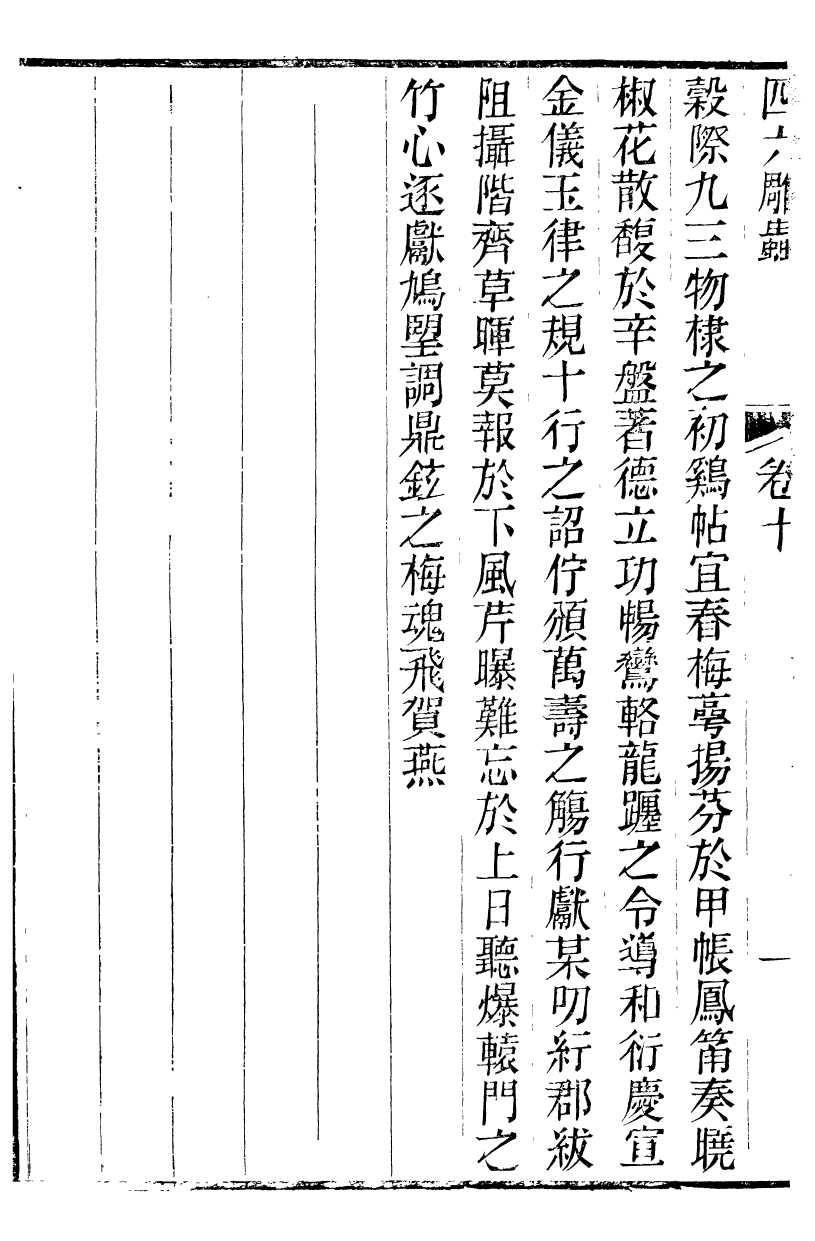 四六雕蟲
卷十
一
穀際九三物棣之初鷄帖宜春梅萼揚芬於甲帳鳳筩奏曉
椒花散馥於辛盤著德立功暢鸞輅龍躔之令導和衍慶宣
金儀玉律之規十行之詔佇頒萬壽之觴行獻某叨紆郡紱
阻攝階齊草暉莫報於下風芹曝難忘於上日聽爆轅門之
竹心逐獻鳩朢調鼎鉉之梅魂飛賀燕